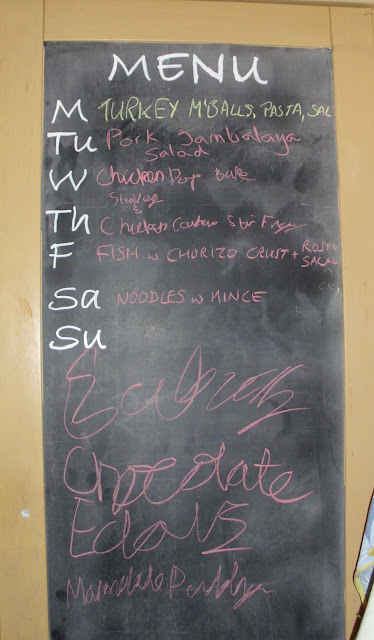 MENU
M TURKEY M'BALLS, PASTA, SAL
Tu Pork Jambalaya
Salad
W Chicken Pop Bake
Th Chicken Cashew Stir Fry
F FISH W CHORIZO CRUST + ROSTI
SALAD
Sa NOODLES W MINCE
Su
Chocolate
Marmelade Pudding